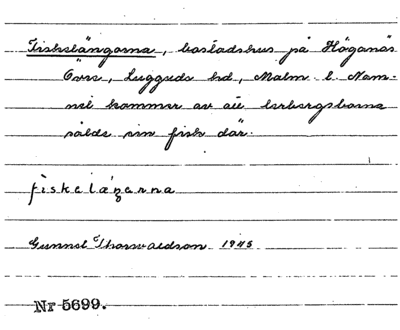 Fiskelängorna, bostadshus på Höganäs
Övre, Luggude hd, Malm. l. Nam-
net kommer av att lerbergsborna
sålde sin fisk där.
fiskelæŋorna
Gunnel Thorvaldson 1945
Nr 5699.